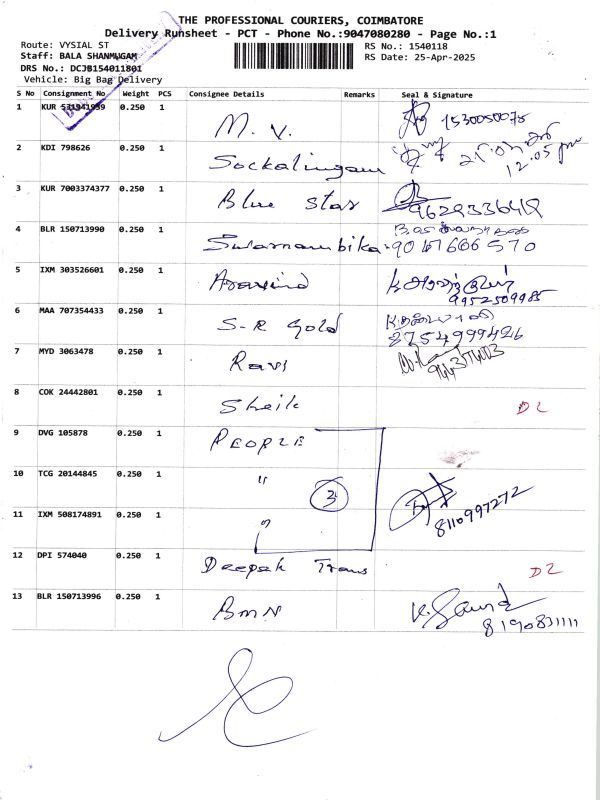 THE PROFESSIONAL COURIERS, COIMBATORE
Delivery Runsheet - PCT - Phone No.:9047080280 - Page No.:1
Route: VYSIAL ST
RS No.: 1540118
Staff: BALA SHANMUGAM
RS Date: 25-Apr-2025
DRS No.: DCJB154011801
Vehicle: Big Bag Delivery
S No Consignment No Weight PCS Consignee Details Remarks Seal & Signature
1 KUR 531941939 0.250 1 M. V. 1530050075
2 KDI 798626 0.250 1 Sockalingam 12.05 pm
3 KUR 7003374377 0.250 1 Blue Star 9629333649
4 BLR 150713990 0.250 1 Swarnambika 9047666570
5 IXM 303526601 0.250 1 Aravind 9952509985
6 MAA 707354433 0.250 1 S-R Gold 8754999426
7 MYD 3063478 0.250 1 Ravi
8 COK 24442801 0.250 1 Sheik DL
9 DVG 105878 0.250 1 PEOPLE
10 TCG 20144845 0.250 1 " 3 8110997272
11 IXM 508174891 0.250 1 "
12 DPI 574040 0.250 1 Deepak Trans DL
13 BLR 150713996 0.250 1 BMN 8190831111